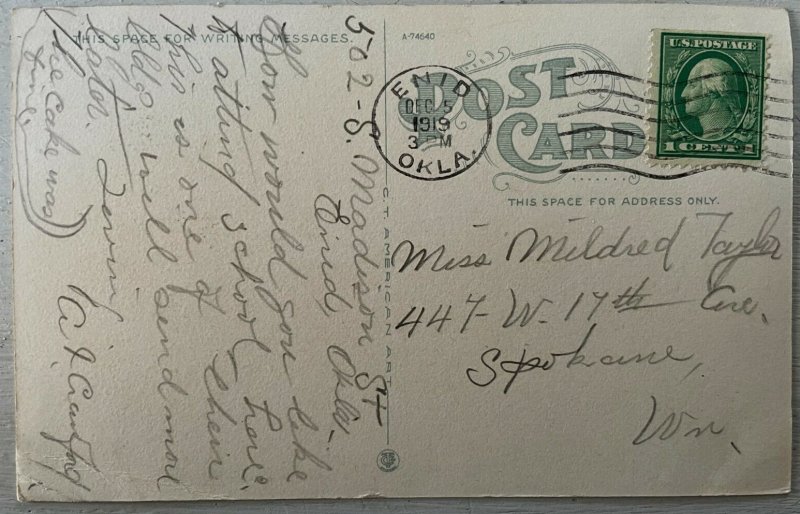 THIS SPACE FOR WRITING MESSAGES.
A-74640
POST
CARD
THIS SPACE FOR ADDRESS ONLY.
ENID
DEC 5
1919
3 PM
OKLA.
U.S. POSTAGE
1 CENT 1
502-S. Madison St
Enid, Okla.
How would you like
attling school here.
This is one of their
old. will send more
later. Loving
(The cake was
fine.)
C.T. AMERICAN ART
Miss Mildred Taylor
447-W. 17th Ave.
Spokane,
Wn.